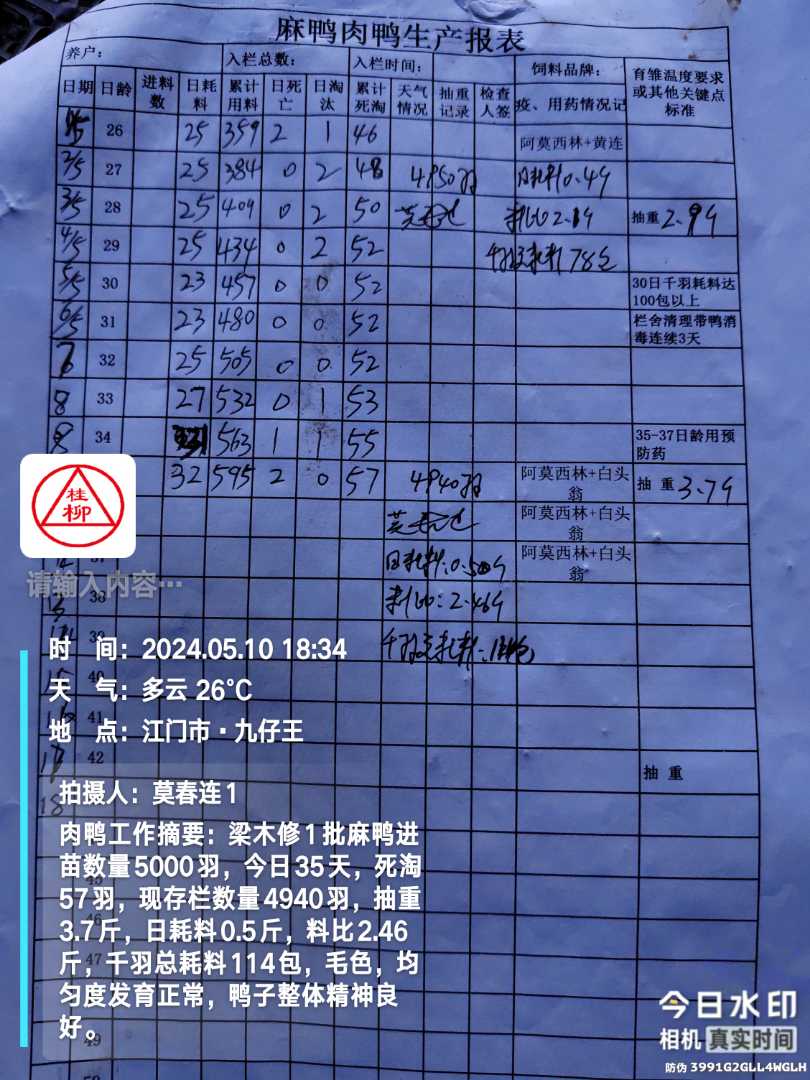 麻鸭肉鸭生产报表
养户： 入栏总数： 入栏时间： 饲料品牌： 育雏温度要求或其他关键点标准
日期 日龄 进料数 日耗料 累计用料 日死亡 日淘汰 累计死淘 天气情况 抽重记录 检查人签 疫、用药情况记
26 25 359 2 1 46 阿莫西林+黄连
2/5 27 25 384 0 2 48 4950羽 日耗料0.49
3/5 28 25 409 0 2 50 料比2.19 抽重2.99
4/5 29 25 434 0 2 52 千羽总耗料78包
5/5 30 23 457 0 0 52 30日千羽耗料达100包以上
6/5 31 23 480 0 0 52 栏舍清理带鸭消毒连续3天
32 25 505 0 0 52
8 33 27 532 0 1 53
34 563 1 1 55 35-37日龄用预防药
32 595 2 0 57 4940羽 阿莫西林+白头翁 抽重3.79
阿莫西林+白头翁
日耗料:0.509 阿莫西林+白头翁
38 料比:2.469
39 千羽总耗料:114包
40
41
17 42 抽重
18
47
49
桂柳
请输入内容…
时 间：2024.05.10 18:34
天 气：多云 26℃
地 点：江门市·九仔王
拍摄人：莫春连1
肉鸭工作摘要：梁木修1批麻鸭进
苗数量5000羽，今日35天，死淘
57羽，现存栏数量4940羽，抽重
3.7斤，日耗料0.5斤，料比2.46
斤，千羽总耗料114包，毛色，均
匀度发育正常，鸭子整体精神良
好。
今日水印
相机 真实时间
防伪 3991G2GLL4WGLH